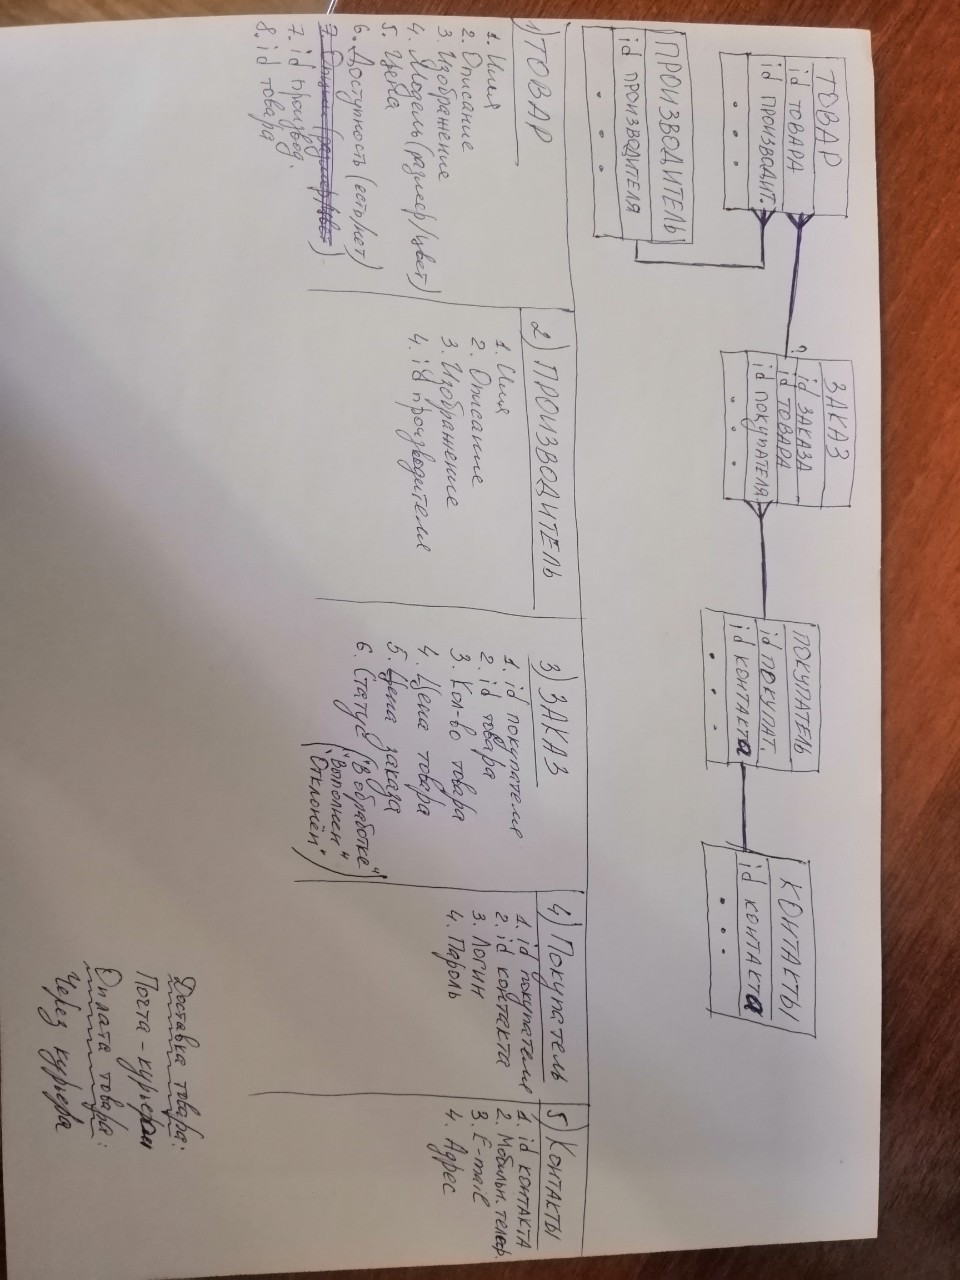 ТОВАР
id ТОВАРА
id ПРОИЗВОДИТ.
ПРОИЗВОДИТЕЛЬ
id ПРОИЗВОДИТЕЛЯ
?
ЗАКАЗ
id ЗАКАЗА
id ТОВАРА
id ПОКУПАТЕЛЯ
ПОКУПАТЕЛЬ
id ПОКУПАТ.
id КОНТАКТА
КОНТАКТЫ
id КОНТАКТА
1) ТОВАР
1. Имя
2. Описание
3. Изображение
4. Модель (размер/цвет)
5. Цена
6. Доступность (есть/нет)
7. Опции (размер/цвет)
7. id производ.
8. id товара
2) ПРОИЗВОДИТЕЛЬ
1. Имя
2. Описание
3. Изображение
4. id производителя
3) ЗАКАЗ
1. id покупателя
2. id товара
3. Кол-во товара
4. Цена товара
5. Цена заказа
6. Статус ("В обработке"
"Выполнен"
"Отклонён")
4) Покупатель
1. id покупателя
2. id контакта
3. Логин
4. Пароль
5) Контакты
1. id контакта
2. Мобильн. телеф.
3. E-mail
4. Адрес
Доставка товара:
Почта - курьером
Оплата товара:
Через курьера